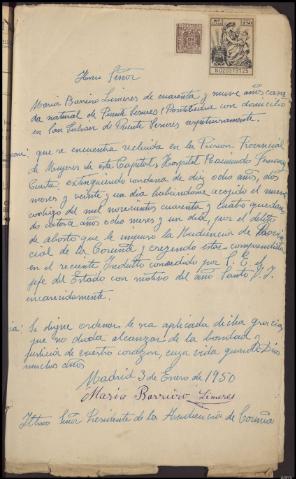 Ilmo Señor
Maria Barriro Limeres de cuarenta y nueve años casa
da natural de Puente Sesures (Pontevedra con domicilio
en San Salvador de Puente Sesures
que se encuentra recluida en la Prision Provincial
de Mujeres de esta Capital y Hospital Raimundo Fernandez
extinguiendo condena de diez ocho años, dos
meses y veinte y un dia habiendome acogido al nuevo
codigo del mil novecientos cuarenta y cuatro quedan
do catorce años ocho meres y un dia, por el delito
de aborto que le impuso la Audiencia de Provin
cial de la Coruña y creyendo estar comprendida
en el reciente Indulto concedido por S. E. el
jefe del Estado con motivo del año Santo,
encarecidamente.
Se digne ordenar le sea aplicada dicha gracia
que no duda alcanzar de la bondad y
justicia de vuestro corazon, cuya vida guarde Dios
muchos años
Madrid 3 de Enero de 1950
Maria Barriro Limeres
Iltmo Señor Presidente de la Audiencia de Coruña